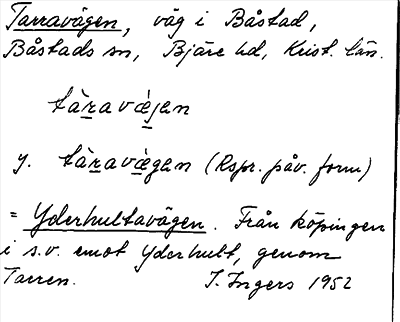 Tarravägen, väg i Båstad,
Båstads sn, Bjäre hd, Krist. län.
tàravæ̀jen
y. tàravæ̀gen (Rspr. påv. form)
= Yderhultavägen. Från köpingen
i s.v. emot Yderhult, genom
Tarren. I. Ingers 1952